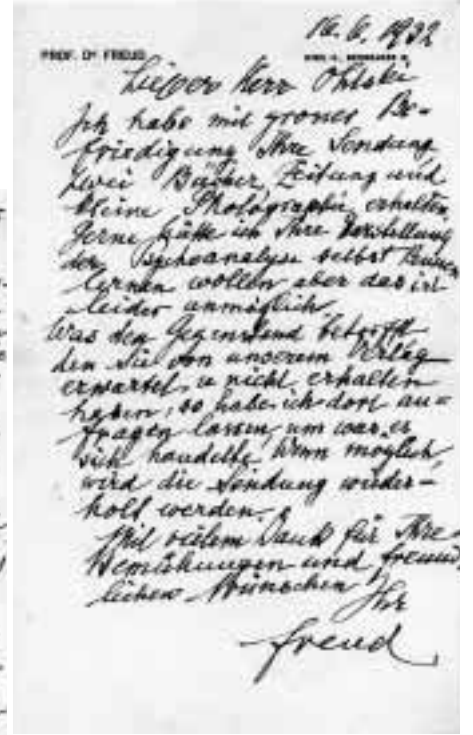 16. 6. 1932
PROF. Dr FREUD
Lieber Herr Ohtski
Ich habe mit grosser Be-
friedigung Ihre Sendung,
zwei Bücher, Zeitung und
kleine Photographie, erhalten.
Gerne hätte ich Ihre Darstellung
der Psychoanalyse selbst
lernen wollen aber das ist
leider unmöglich.
Was den Gegenstand betrifft
den Sie von unserem Verlag
erwartet u nicht erhalten
haben, so habe ich dort an=
fragen lassen, um was es
sich handelte. Wenn möglich,
wird die Sendung wieder-
holt werden.
Mit vielem Dank für Ihre
Bemühungen und freund
lichen Wünschen
Ihr
Freud